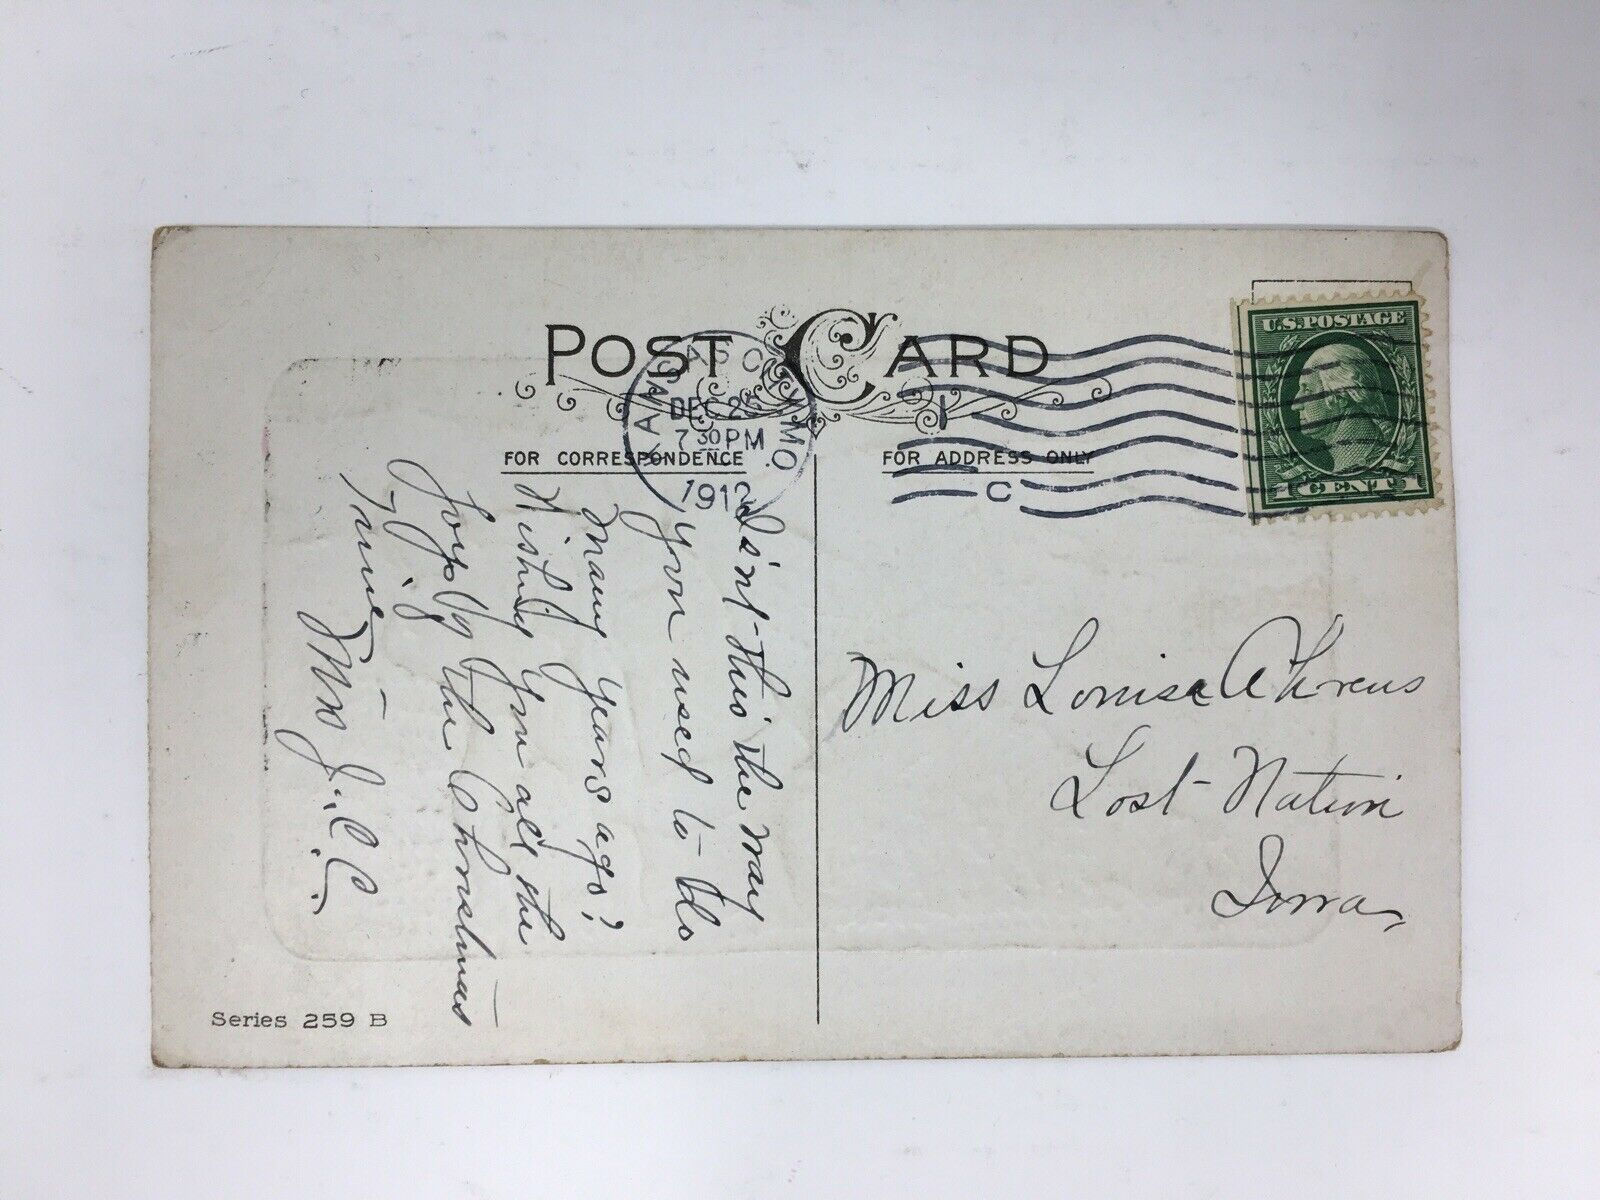 POST CARD
KANSAS CITY, MO.
DEC 25
7 30 PM
1912
1
C
U.S. POSTAGE
1 CENT 1
FOR CORRESPONDENCE
FOR ADDRESS ONLY
Is'nt this the way
you used to do
many years ago?
Wishing you all the
Joys of the Christmas
time,
Mrs J. C. C.
Miss Louise Ahrens
Lost Nation
Iowa
Series 259 B